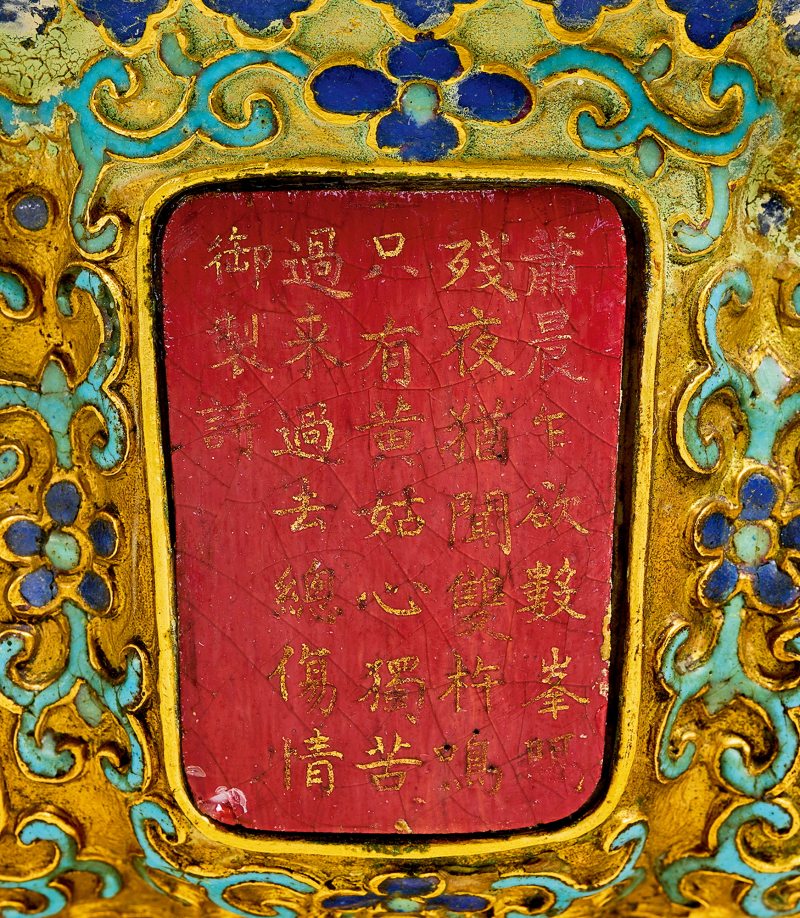 蕭晨乍欲數峯明
殘夜猶聞雙杵鳴
只有黄姑心獨苦
過来過去總傷情
御製詩